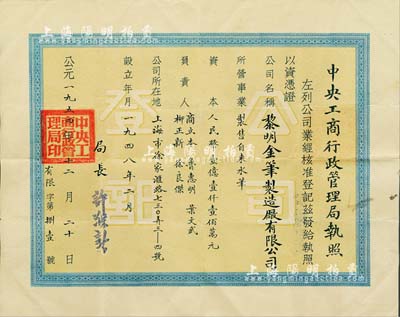 中央工商行政管理局執照
左列公司業經核准登記茲發給執照
以資憑證
公司名稱 黎明金筆製造廠有限公司
所營事業 製售自來水筆
資本 人民幣壹億壹仟壹佰萬元
負責人 商立本 魯惠明 葉文武
柳正新 徐良傑
公司所在地 上海市徐家滙路七三0弄三一四號
設立年月 一九四八年二月
局長 許滌新
公元一九五 年 二月二十日
有限字第捌壹號
中央工商行政管理局印
公司
登記
上海陽明拍賣